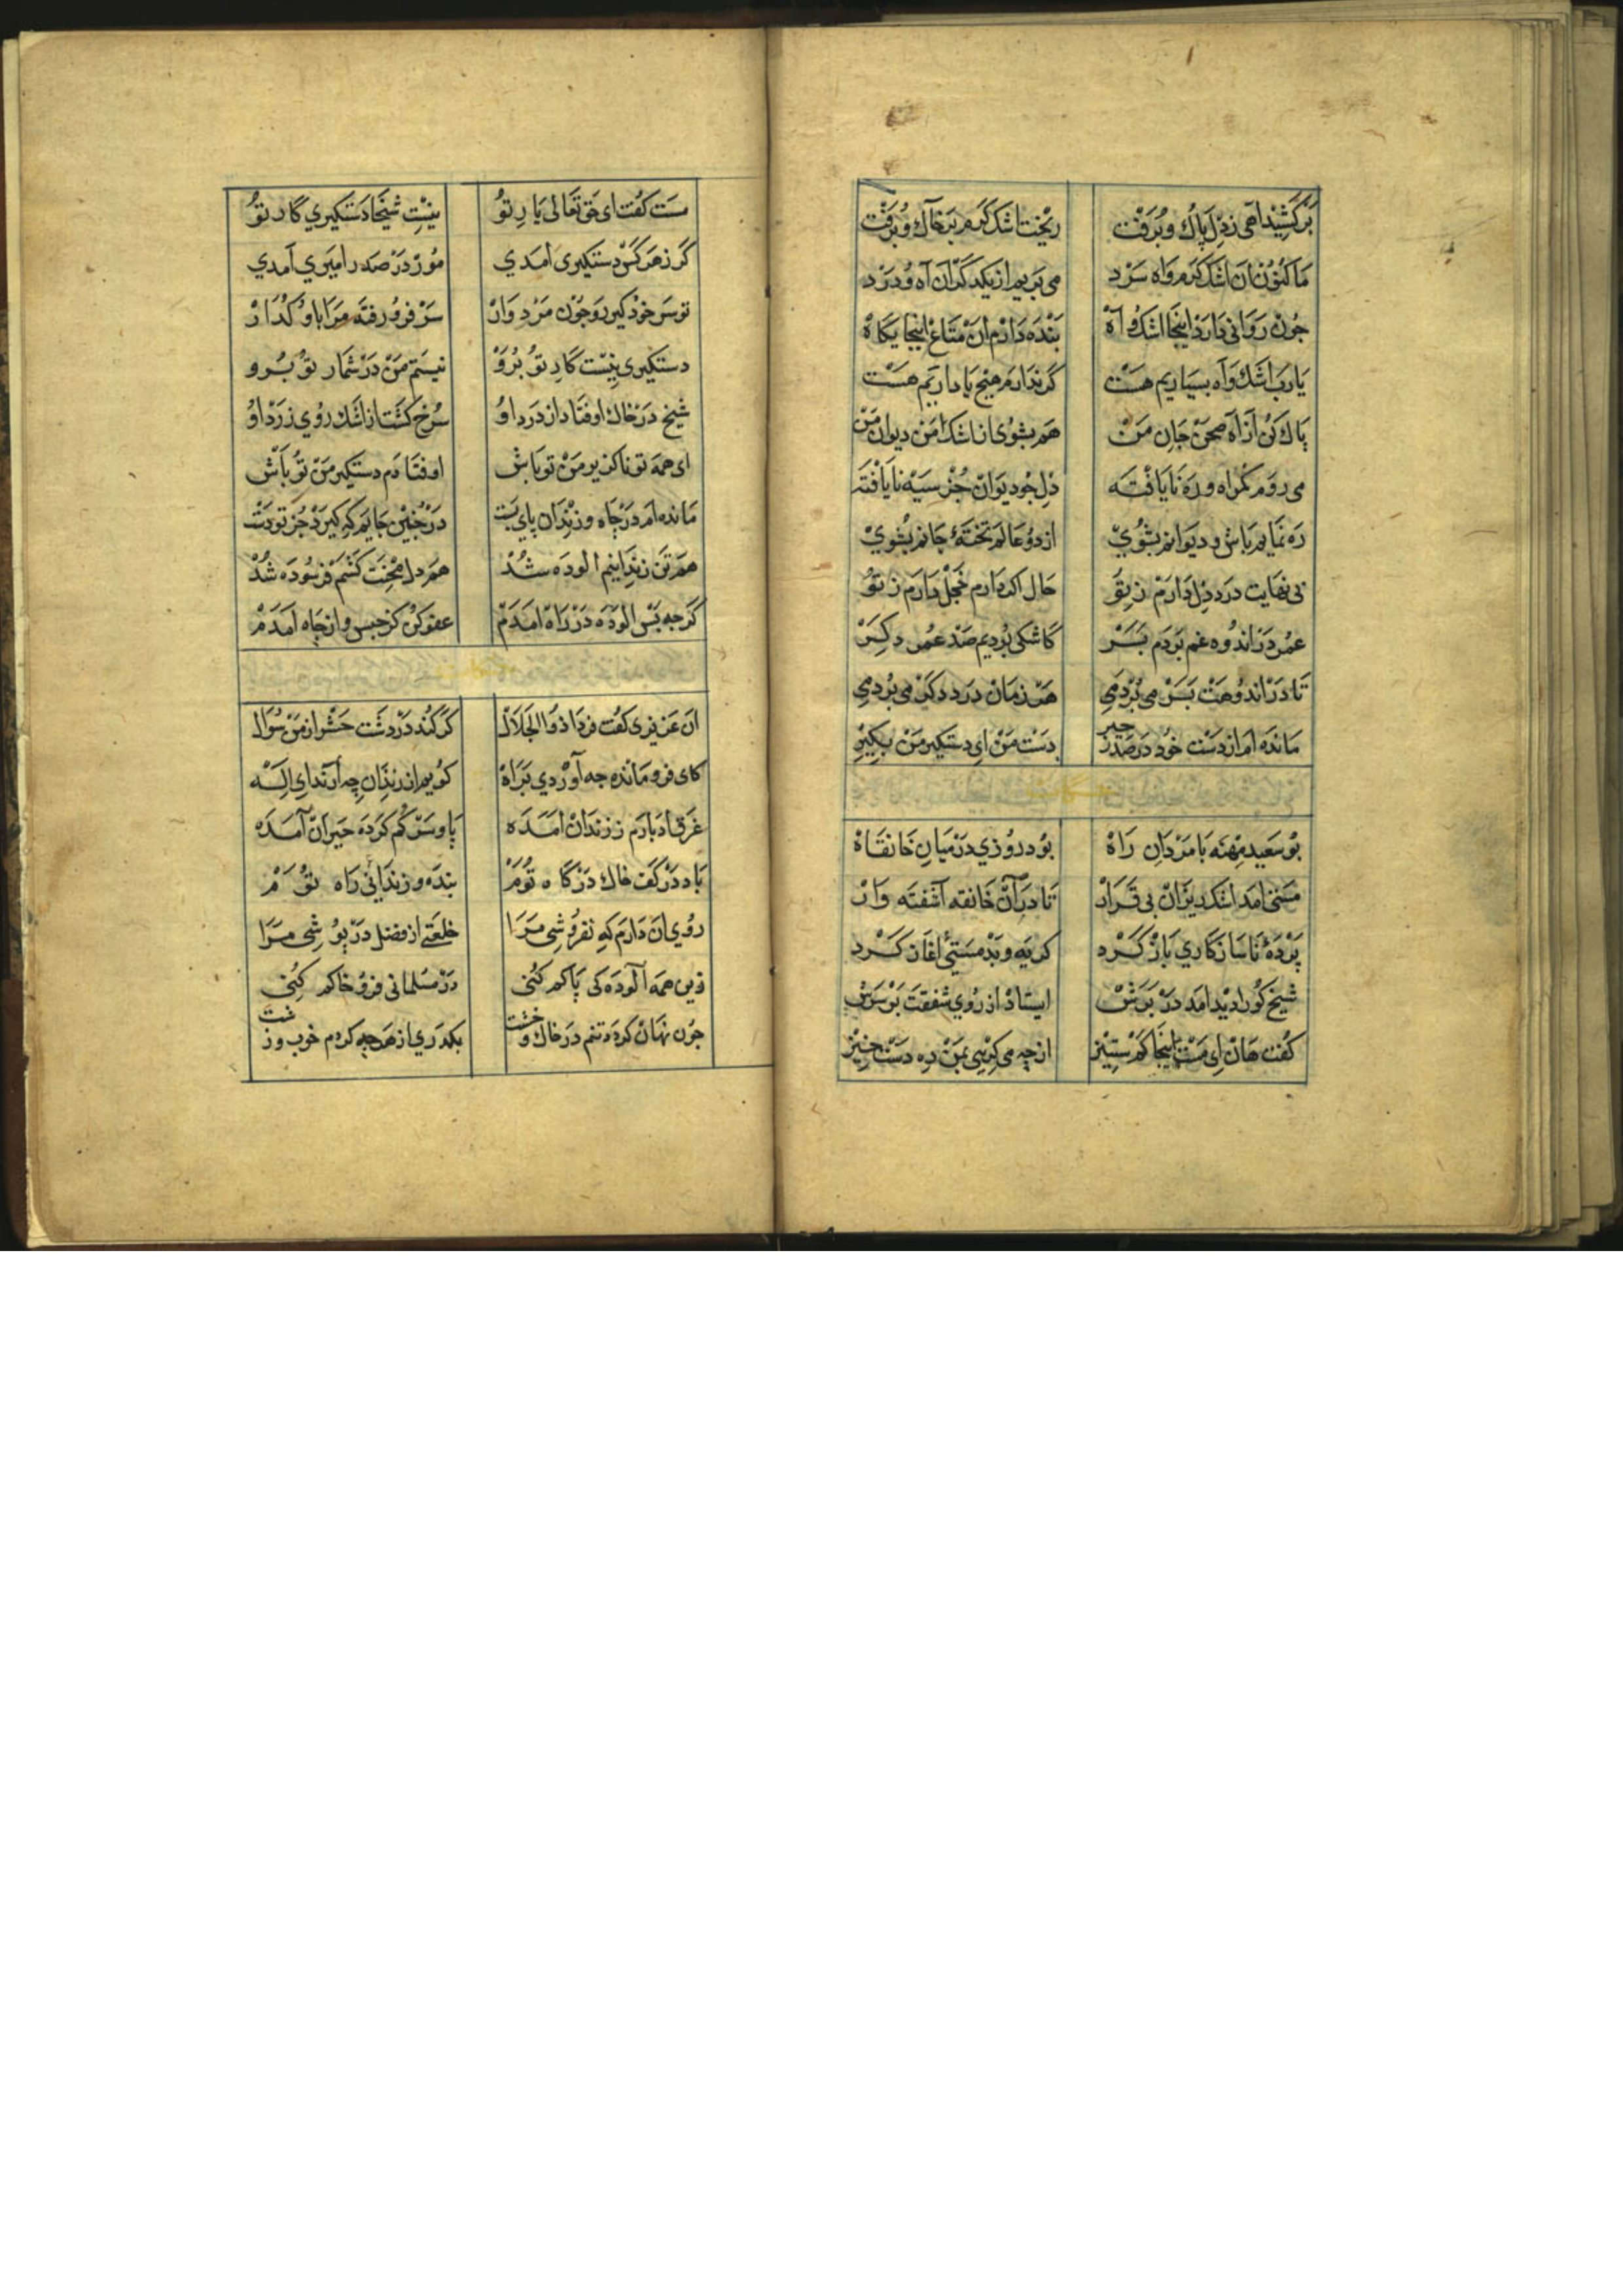 برکشید آهی ز دل پاک و برفت ریخت اشک گرم بر خاک و برفت
ما کنون زان اشک گرم واه سرد می بریم از یکدگران آه و درد
جون روانی دارد اینجا اشک و آه بنده دارم ان متاع اینجایگاه
یارب اشک و آه بسیاریم هست گر ندارم هیج با داریم هست
پاک کن از آه صحن جان من هم بشوی از اشک من دیوان من
می روم گمراه و ره نایافته دل جو دیوان جز سیه نایافته
ره نمایم باش و دیوانم بشوی از دو عالم تختهٔ جانم بشوی
بی نهایت درد دل دارم ز تو حال اکر دارم خجل دارم ز تو
عمر در اندوه غم بردم بسر کاشکی بردیم صد عمر دکر
تا در اندوهت بسر می بردمی هر زمان درد دکر می بردمی
مانده ام از دست خود در صد زحیر دست من ای دستکیر من بکیر
بو سعید مهنه با مردان راه بود روزی در میان خانقاه
مستی امد اشک ریزان بی قرار تا در آن خانقه آشفته وار
پردهٔ ناسازکاری باز کرد کریه و بد مستیٔ اغاز کرد
شیخ کورا دید امد در برش ایستاد از روی شفقت بر سرش
کفت هان ای مست اینجا کم ستیز از چه می کریی بمن ده دست خیز
مست کفت ای حق تعالی یار تو نیست شیخا دستکیری کار تو
گر ز هر کس دستکیری امدی مور در صدر امیری آمدی
تو سر خود کیر رو جون مرد وار سر فرو رفته مرا با او گذار
دستکیری نیست کار تو برو نیستم من در شمار تو برو
شیخ در خاک اوفتاد از درد او سرخ کشت از اشک روی زرد او
ای همه تو ناکزیر من تو باش اوفتادم دستکیر من تو باش
مانده ام در چاه و زندان پای بست در جنین جایم که کیرد جز تو دست
هم تن زندانیم الوده شد هم دل محنت کشم فرسوده شد
گرجه بس الوده در راه امدم عفو کن کز حبس و از چاه امدم
ان عزیزی کفت فردا ذوالجلال گر کند در دشت حشر از من سوال
کای فرو مانده جه آوردی براه کویم از زندان چه ارند ای اله
غرق ادبارم ز زندان امده پا و سر گم کرده حیران آمده
باد در کف خاک درگاه توم بنده و زندانی راه توم
روی ان دارم که نفروشی مرا خلعتی از فضل در پوشی مرا
زین همه آلودگی پاکم کنی در مسلمانی فرو خاکم کنی
جون نهان کرده تنم در خاک و خشت بکدری از هر جه کردم خوب و زشت